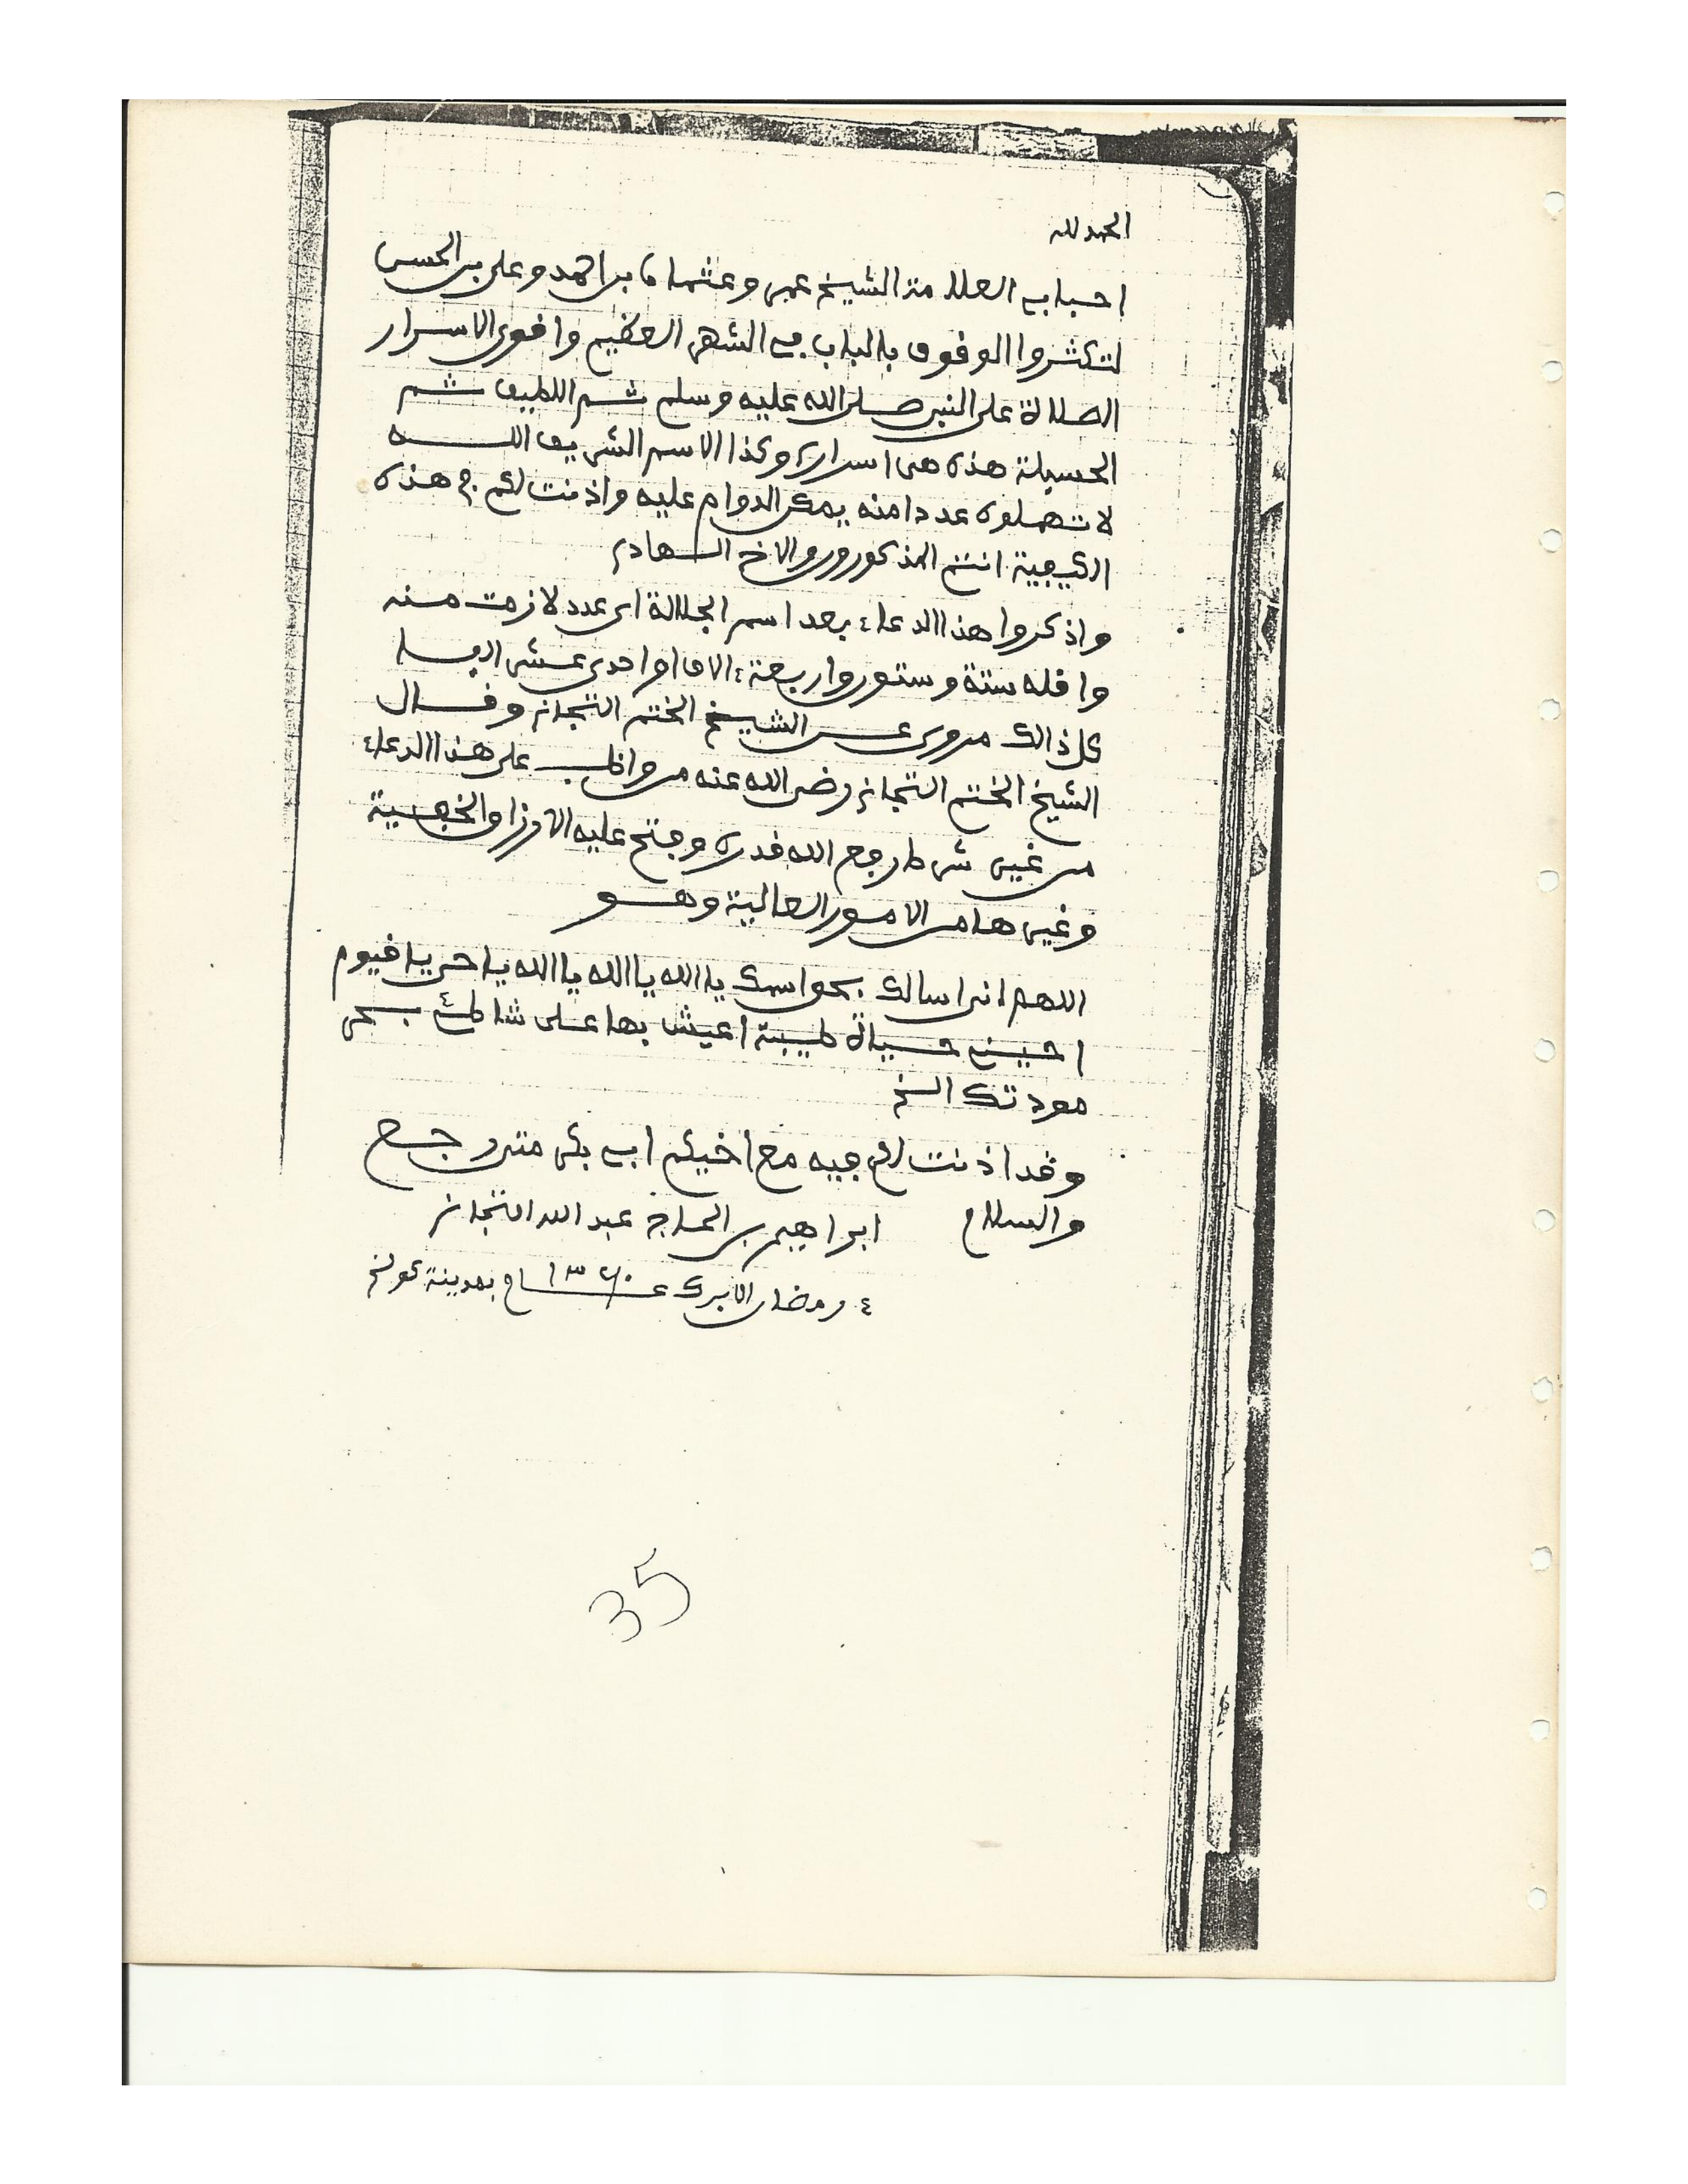 الحمد لله
احبابي العلامة الشيخ عمر وعثمان بن احمد وعلي بن الحسن
لتكثروا الوقوف بالباب في الشهر العظيم واقوى الاسرار
الصلاة على النبي صلى الله عليه وسلم ثم اللطيف ثم
الحسبلة هذه هي اسراره وكذا الاسم الشريف اللـــه
لا تهملوه عددا منه يمكن الدوام عليه واذنت لكم في هذه
الكيفية انتم المذكورون والاخ الهادي
واذكروا هذا الدعاء بعد اسم الجلالة اي عدد لازمت منه
واقله ستة وستون واربعة ءالاف او احدى عشر الفا
كل ذالك مروي عن الشيخ الختم التجاني وقال
الشيخ الختم التجاني رضي الله عنه من واظب على هذا الدعاء
من غير شرط رفع الله قدره وفتح عليه الارزاق الخفية
وغيرها من الامور العالية وهو
اللهم اني اسالك بحق اسمك يا الله يا الله يا الله يا حي يا قيوم
احيني حياة طيبة اعيش بها على شاطئ بحر
مودتك الخ
وقد اذنت لكم فيه مع اخيكم ابي بكر
والسلام ابراهيم بن الحاج عبد الله التجاني
٤ رمضان الابرك عــ١٣٦٠ـــام بمدينة كولخ
35